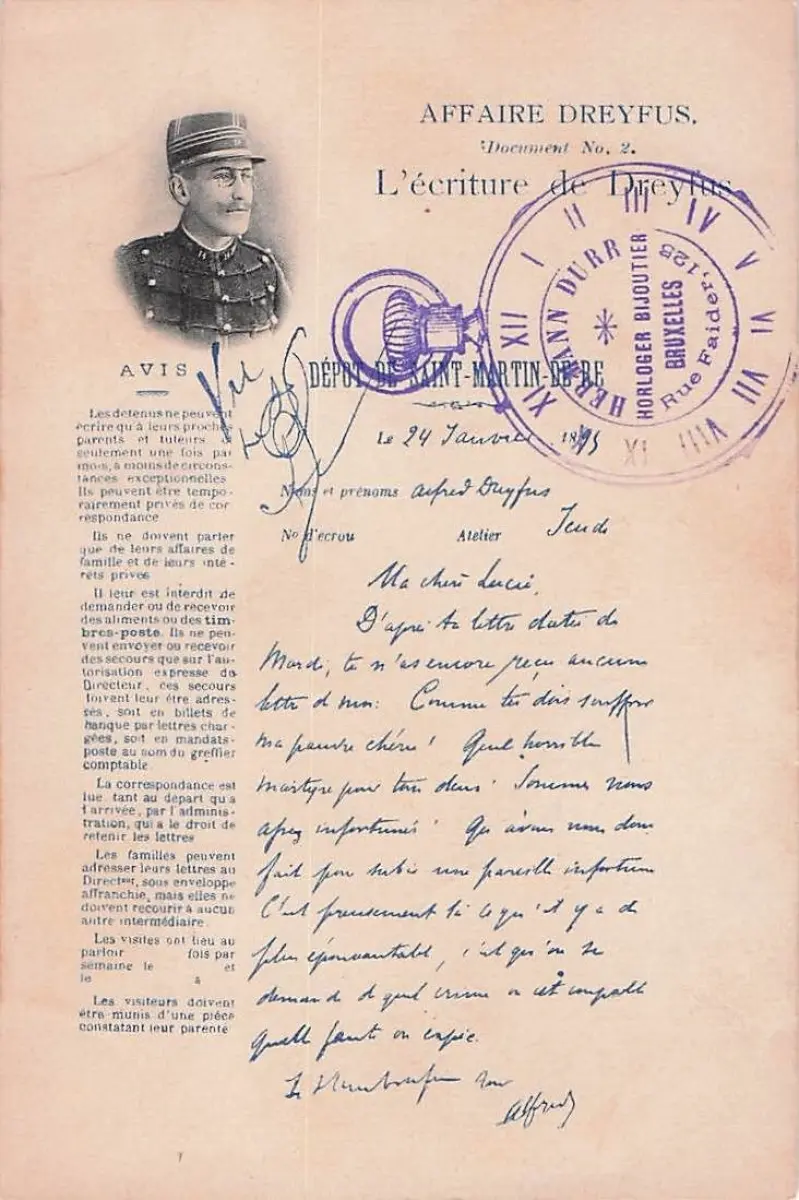 AFFAIRE DREYFUS.
Document No. 2.
L'écriture de Dreyfus
I II III IV V VI VII VIII XI XII
HERMANN DURR
HORLOGER BIJOUTIER
BRUXELLES
Rue Faider, 125
AVIS
Vu
Les detenus ne peuvent
écrire qu'à leurs proches
parents et tuteurs &
seulement une fois par
mois, a moins de circons-
tances exceptionnelles
Ils peuvent être tempo-
rairement privés de cor
respondance
Ils ne doivent parler
que de leurs affaires de
famille et de leurs inté-
rêts privés
Il leur est interdit de
demander ou de recevoir
des aliments ou des tim-
bres-poste. Ils ne peu-
vent envoyer ou recevoir
des secours que sur l'au-
torisation expresse du
Directeur, ces secours
doivent leur être adres-
sés, soit en billets de
banque par lettres char-
gées, soit en mandats-
poste au nom du greffier
comptable
La correspondance est
lue tant au départ qu'a
l'arrivée, par l'adminis-
tration, qui a le droit de
retenir les lettres
Les familles peuvent
adresser leurs lettres au
Directeur, sous enveloppe
affranchie, mais elles ne
doivent recourir à aucun
autre intermédiaire
Les visites ont lieu au
parloir fois par
semaine le et
le a
Les visiteurs doivent
être munis d'une pièce
constatant leur parenté
DÉPOT DE SAINT-MARTIN-DE-RE
Le 24 Janvier 1895
Noms et prénoms Alfred Dreyfus
No d'écrou Atelier Jeudi
Ma chère Lucie,
D'après ta lettre datée de
Mardi, tu n'as encore reçu aucune
lettre de moi. Comme tu dois souffrir
ma pauvre chérie! Quel horrible
martyre pour tous deux! Sommes nous
assez infortunés! Qu'avons nous donc
fait pour subir une pareille infortune
C'est précisément là ce qu'il y a de
plus épouvantable, c'est qu'on se
demande de quel crime on est coupable
quelle faute on expie.
Alfred